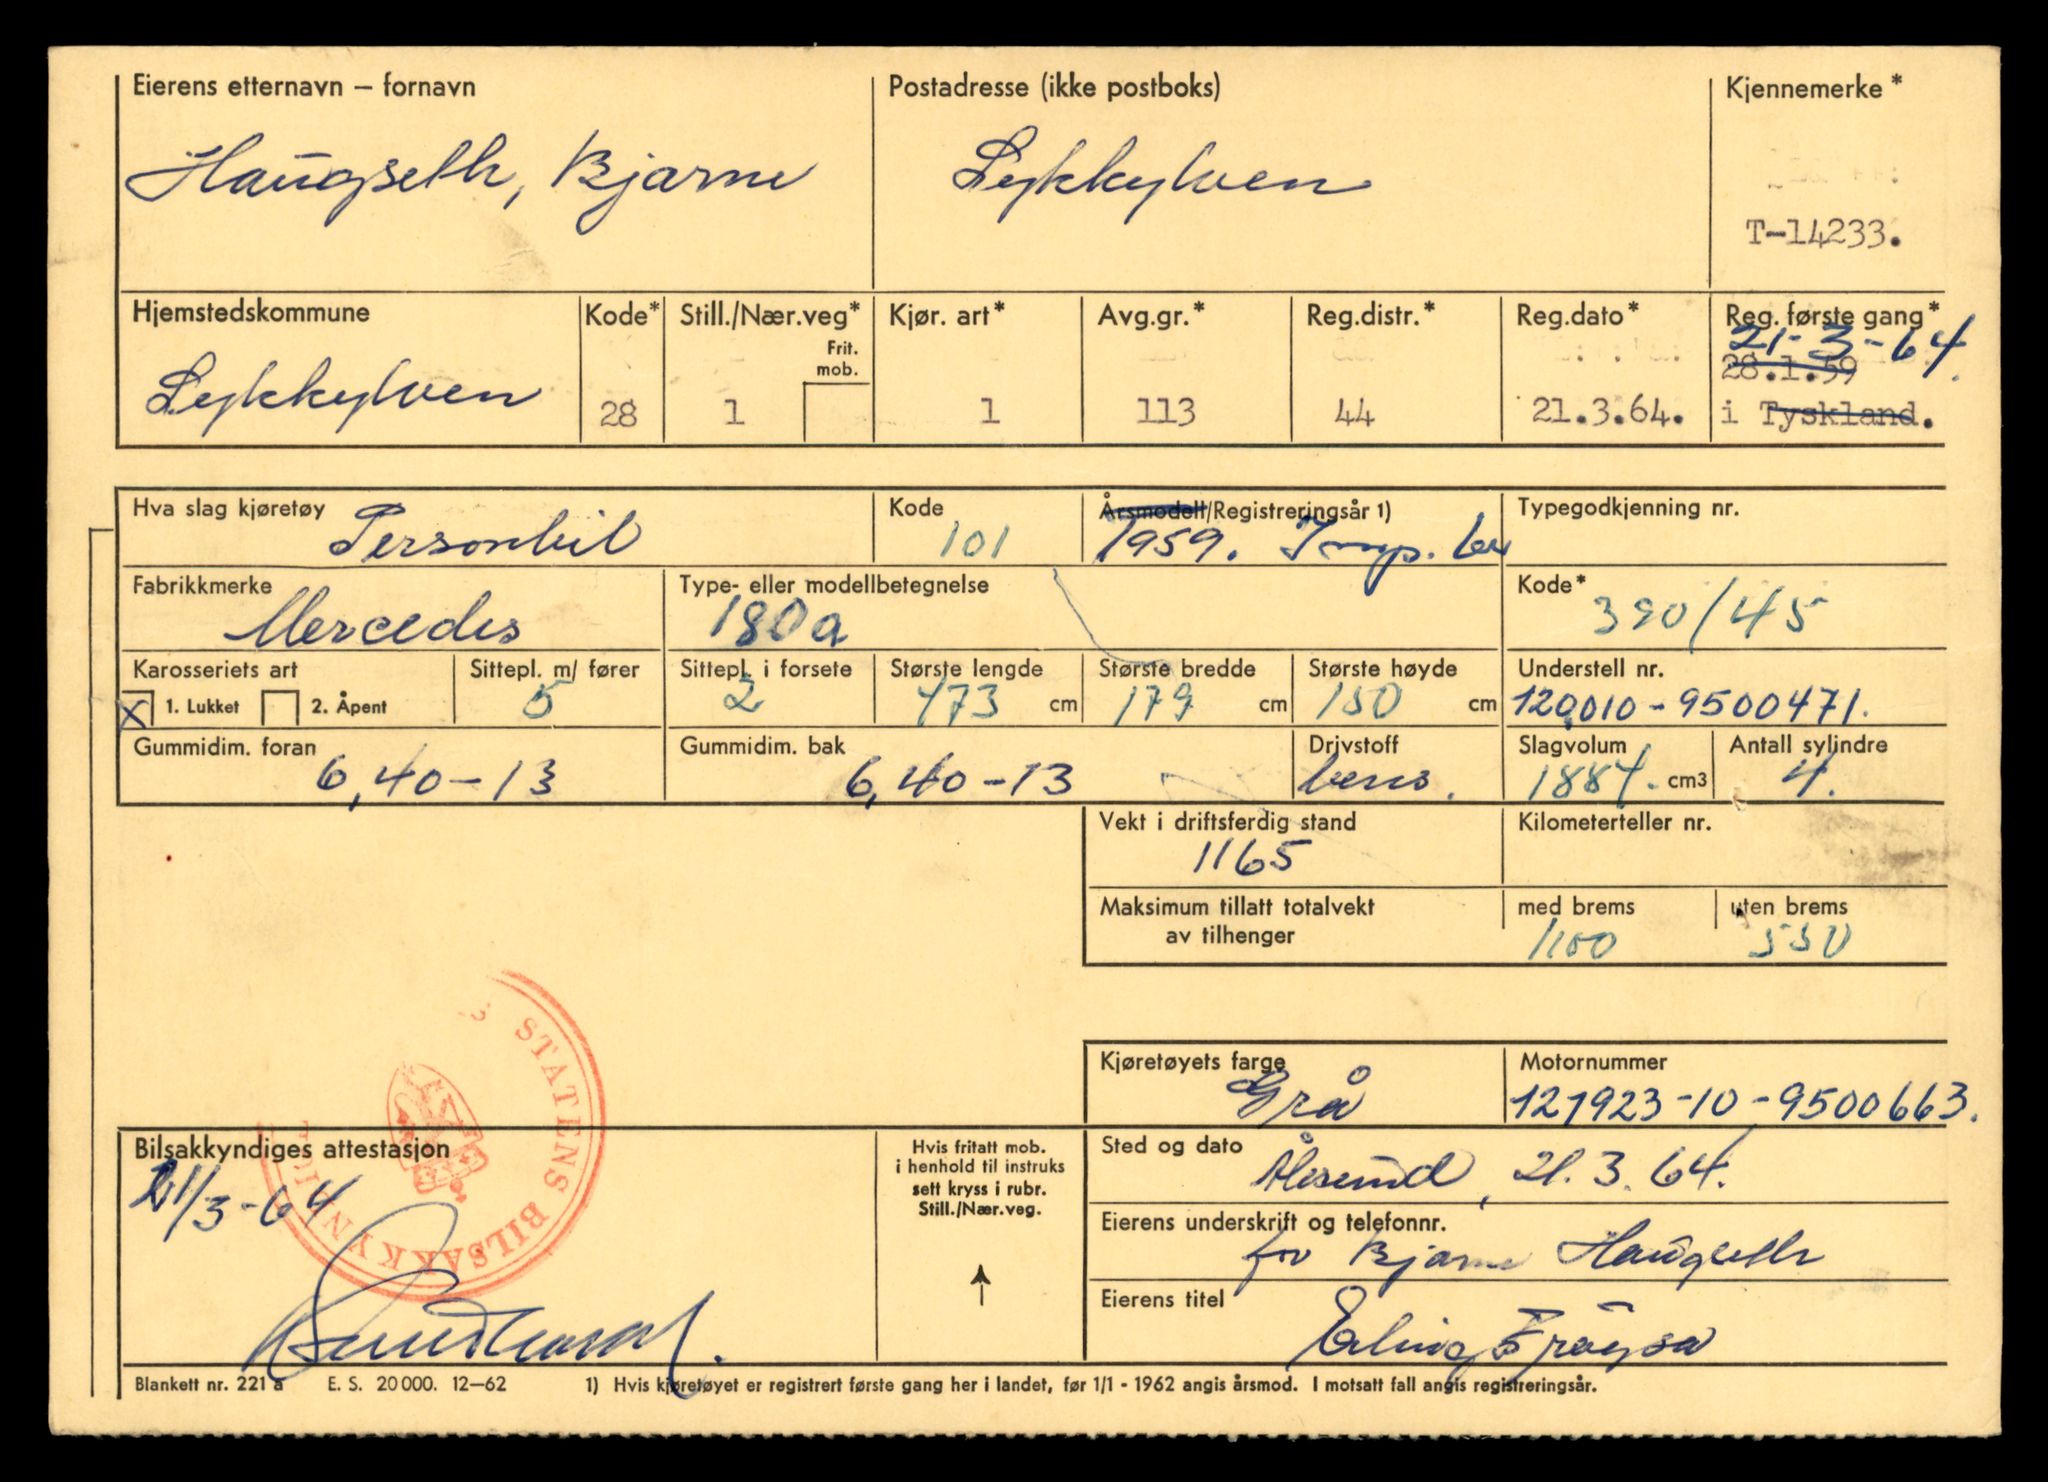 Eierens etternavn – fornavn
Postadresse (ikke postboks)
Kjennemerke *
Haugseth, Bjarne
Sykkylven
T-14233.
Hjemstedskommune
Kode*
Still./Nær.veg*
Frit. mob.
Kjør. art*
Avg.gr.*
Reg.distr.*
Reg.dato*
Reg. første gang*
21-3-64
28.1.59
Sykkylven
28
1
1
113
44
21.3.64.
i Tyskland.
Hva slag kjøretøy
Kode
Årsmodell/Registreringsår 1)
Typegodkjenning nr.
Personbil
101
1959. Imp. br
Fabrikkmerke
Type- eller modellbetegnelse
Kode*
Mercedes
180a
390/45
Karosseriets art
Sittepl. m/ fører
Sittepl. i forsete
Største lengde
Største bredde
Største høyde
Understell nr.
X 1. Lukket
2. Åpent
5
2
473 cm
179 cm
150 cm
120010-9500471.
Gummidim. foran
Gummidim. bak
Drivstoff
Slagvolum
Antall sylindre
6,40-13
6,40-13
bens.
1884. cm3
4.
Vekt i driftsferdig stand
Kilometerteller nr.
1165
Maksimum tillatt totalvekt
av tilhenger
med brems
uten brems
1100
550
STATENS BILSAKKYNDIGE
Kjøretøyets farge
Motornummer
Grå
121923-10-9500663.
Bilsakkyndiges attestasjon
21/3-64
Hvis fritatt mob.
i henhold til instruks
sett kryss i rubr.
Still./Nær.veg.
Sted og dato
Ålesund, 21.3.64.
Eierens underskrift og telefonnr.
for Bjarne Haugseth
Eierens titel
Erling
Blankett nr. 221 a E. S. 20 000. 12—62
1) Hvis kjøretøyet er registrert første gang her i landet, før 1/1 - 1962 angis årsmod. I motsatt fall angis registreringsår.